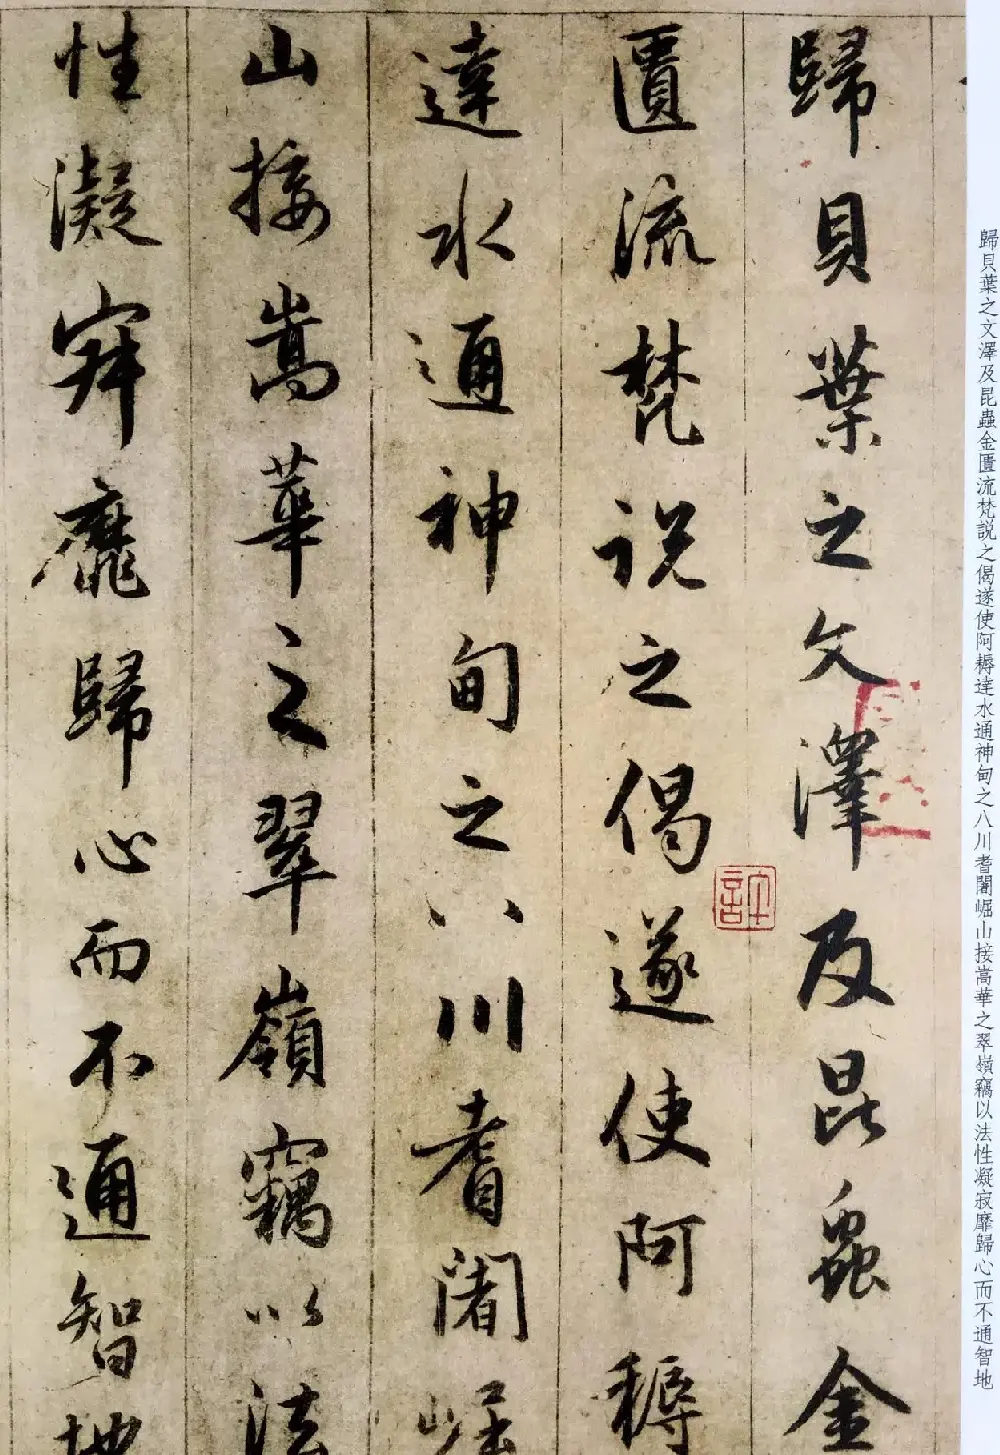 歸貝葉之文澤及昆蟲金
匱流梵說之偈遂使阿耨
達水通神甸之八川耆闍崛
山接嵩華之翠嶺竊以法
性凝寂靡歸心而不通智地
歸貝葉之文澤及昆蟲金匱流梵説之偈遂使阿耨達水通神甸之八川耆闍崛山接嵩華之翠嶺竊以法性凝寂靡歸心而不通智地